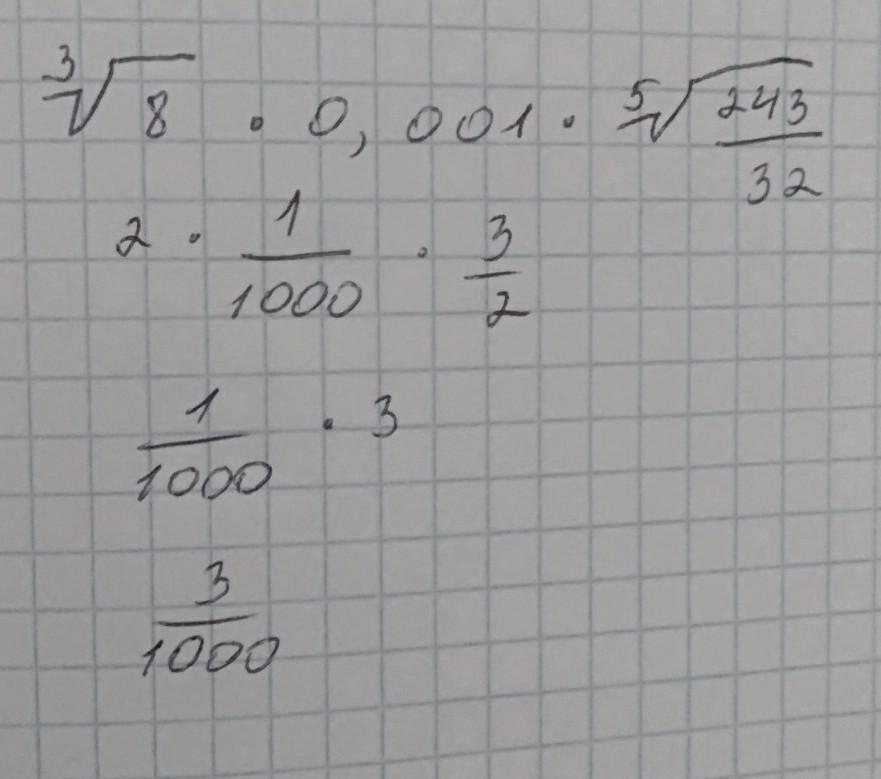 ∛8 · 0,001 · ⁵√(243/32)
2 · 1/1000 · 3/2
1/1000 · 3
3/1000